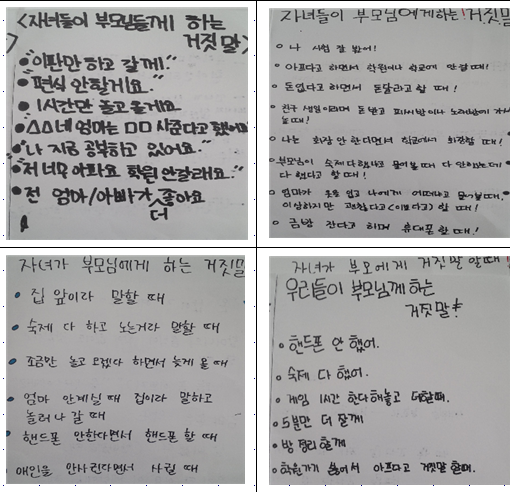 <자녀들이 부모님들께 하는
거짓말>
"이판만 하고 갈께."
"편식 안할게요."
1시간만 놀고 올게요
△△네 엄마는 □□ 사준다고 했어
"나 지금 공부하고 있어요."
"저 너무 아파요 학원 안갈래요."
전 엄마/아빠가 더 좋아요
자녀들이 부모님에게하는! 거짓말
나 시험 잘 봤어!
아프다고 하면서 학원이나 학교에 안 갈 때!
돈없다고 하면서 돈달라고 할 때!
친구 생일이라며 돈 받고 피시방이나 노래방에 가서
놀 때!
나는 회장 안 한다면서 학교에서 회장할 때!
부모님이 숙제 다했냐고 물어볼 때 다 안했는데
다 했다고 할 때!
엄마가 옷을 입고 나에게 어떠냐고 물어볼때,
이상하지만 괜찮다고(이쁘다고) 할 때!
금방 잔다고 하며 휴대폰 할 때!
자녀가 부모님에게 하는 거짓말
집 앞이라 말할 때
숙제 다 하고 노는거라 말할 때
조금만 놀고 오겠다 하면서 늦게 올 때
엄마 안계실 때 집이라 말하고
놀러 나 갈 때
핸드폰 안한다면서 핸드폰 할 때
애인을 안사귄다면서 사귈 때
자녀가 부모에게 거짓말 할때!
우리들이 부모님께 하는
거짓말!
핸드폰 안 했어.
숙제 다 했어.
게임 1시간 한다 해놓고 더할때.
5분만 더 잘게
방 정리 할게
학원가기 싫어서 아프다고 거짓말 할때.